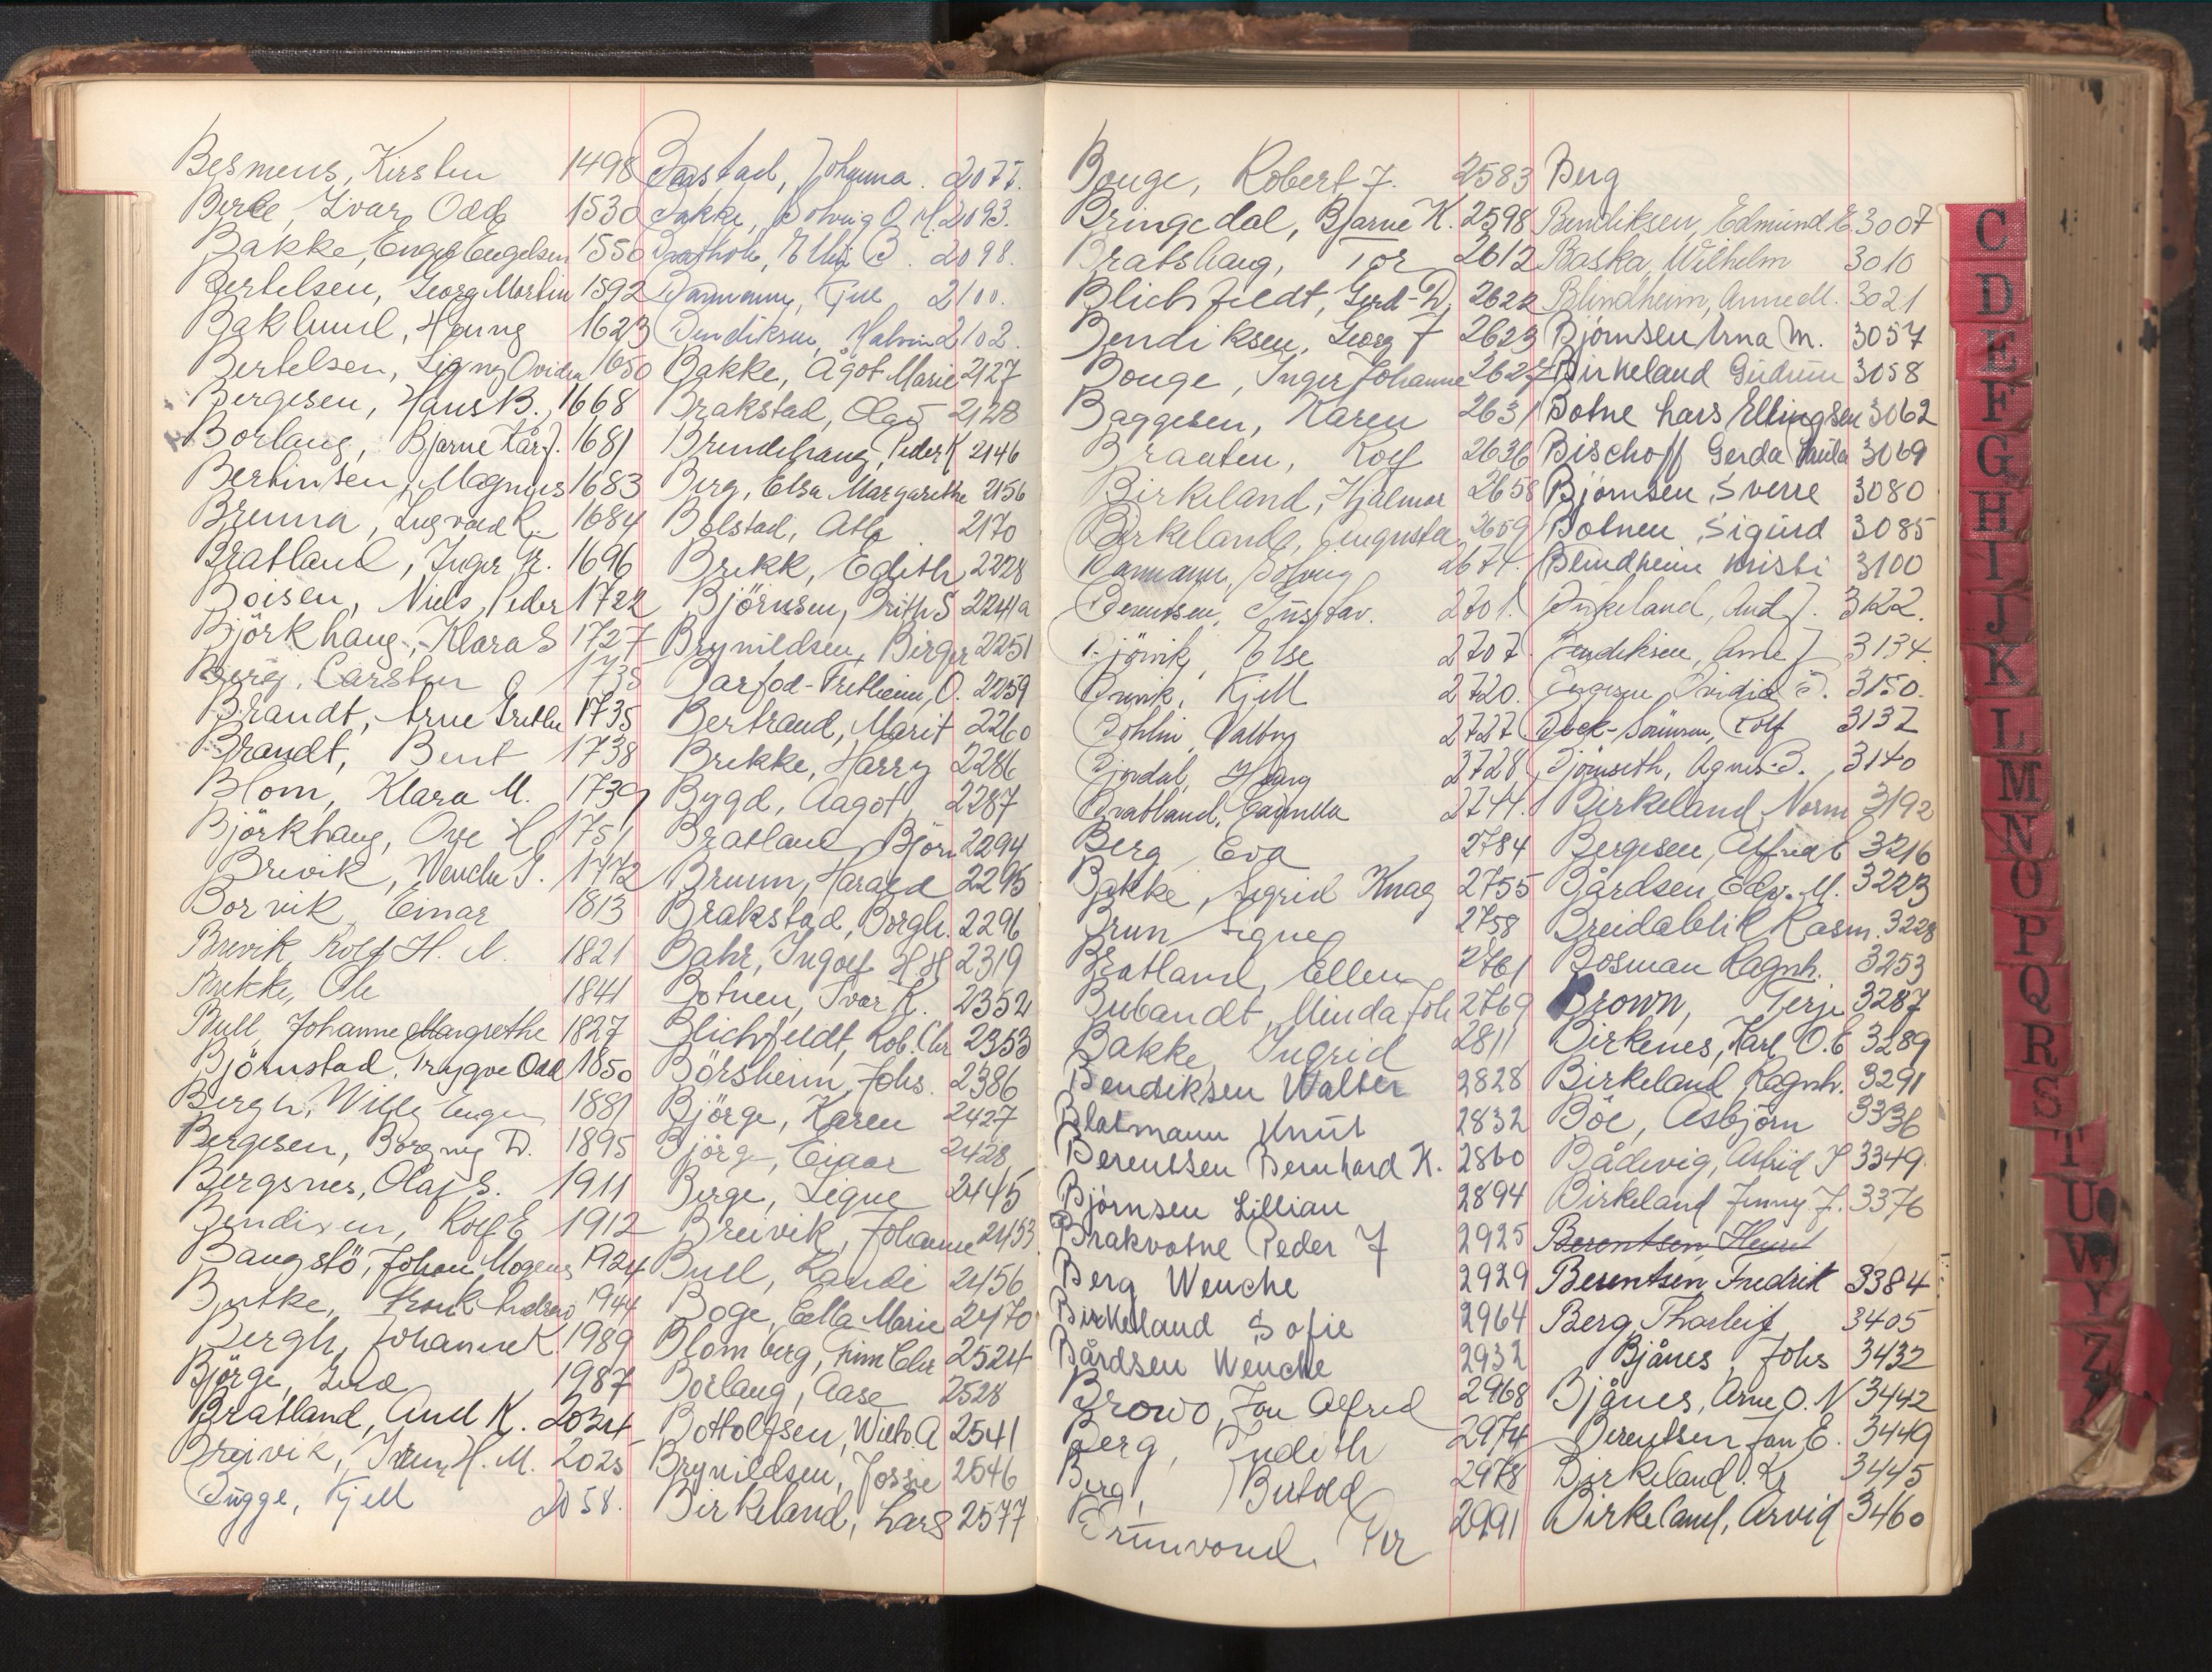 Besmens, Kirsten 1498
Berle, Ivar Odd 1530
Bakke, Engel Engelsen 1550
Bertelsen, Georg Martin 1592
Baklund, Henny 1623
Bertelsen, Signy Ovidia 1650
Bergesen, Hans B. 1668
Borlaug, Bjarne Kåre J. 1681
Bertinsen, Magnus 1683
Brenna, Ingvald R. 1684
Bratland, Inger K. 1696
Boisen, Niels Peder 1722
Björkhaug, Klara S 1727
Berg, Carsten 1735
Brandt, Arne Grethe 1735
Brandt, Bent 1738
Blom, Klara M. 1739
Björkhaug, Ove H 1751
Brevik, Wenche S. 1772
Borvik, Einar 1813
Brevik, Rolf H. N. 1821
Brekke, Ole 1841
Bull, Johanne Margrethe 1827
Björnstad, Trygve Odd 1850
Bergh, Willy Eugen 1881
Bergesen, Borgny D. 1895
Bergsnes, Olaf S. 1911
Bendixen, Rolf E 1912
Baugstö, Johan Mogens 1924
Bjutke, Andrew 1944
Bergh, Johanne K. 1989
Björge, 1987
Bratland, Aud K. 2034
Breivik, H. M. 2025
Bugge, Kjell 2058.
Baastad, Johanna. 2077.
Bakke, Solveig O. M. 2093.
Elly B. 2098.
Barmann, 2100.
Bendiksen, Malvin 2102.
Bakke, Ågot Marie 2127
Brakstad, Olav 2128
Brundehaug, Peder K 2146
Berg, Elsa Margarethe 2156
Bolstad, Atle 2170
Brekk, Edith 2228
Björnsen, Brith S 2241a
Brynildsen, Birger 2251
Barfod-Fretheim, O. 2259
Bertrand, Marit 2260
Brekke, Harry 2286
Bygd, Aagot 2287
Bratland Björn 2294
Bruun, Harald 2295
Brakstad, Borgh. 2296
Bahr, Ingolf H H 2319
Botnen, Ivar K. 2352
Blichfeldt, Rob. Chr 2353
Börsheim, Johs. 2386
Björge, Karen 2427
Björge, Einar 2428
Berge, Signe 2445
Breivik, Johanne 2453
Bull, Randi 2456
Boge, Ella Marie 2470
Blomberg, Finn Chr 2524
Borlaug, Aase 2528
Bottolfsen, Wilh. A 2541
Brynildsen, Jossie 2546
Birkeland, Lars 2577
Bouge, Robert J. 2583
Bringedal, Bjarne K. 2598
Bratshaug, Tor 2612
Blichfeldt, Gerd-W. 2622
Bendiksen, Georg J 2623
Bouge, Inger Johanne 2627
Baggesen, Karen 2631
Braaten, Rolf 2636
Birkeland, Hjalmar 2658
Birkeland, Augusta 2659
Barmann, Solveig 2674.
Berentsen, Gustav. 2701.
Bjövik, Else 2707.
Brevik, Kjell 2720.
Bohlin, Valborg 2727
Bjordal, Haug 2728
Bratland, Gunilla 2744.
Berg Eva 2784
Bakke, Sigrid Knag 2755
Brun Signe 2758
Bratland, Ellen 2761
Bubandt, Minda Joh 2769
Bakke, Ingrid 2811
Bendiksen Walter 2828
Blatmann Knut 2832
Berentsen Bernhard K. 2860
Björnsen Lillian 2894
Brakvatne Peder J 2925
Berg Wenche 2929
Birkeland Sofie 2964
Bårdsen Wenche 2932
Browo, Jon Alfred 2968
Berg, Judith 2974
Berg, 2978
Brunvand, Per 2991
Berg
Bendiksen, Edmund E. 3007
Baska, Wilhelm 3010
Blindheim, Anne M. 3021
Björnsen Arna M. 3057
Birkeland Gudrun 3058
Botne Lars Ellingsen 3062
Bischoff Gerda Paula 3069
Björnsen, Sverre 3080
Botnen, Sigurd 3085
Blindheim Kristi 3100
Birkeland, Aud J. 3122.
Bendiksen, Arne J 3134.
Bergesen, Ovidia 3150.
Bock-Sörensen, Rolf 3137
Björnseth, Agnes B. 3140
Birkeland, Norm 3192
Bergesen, Alfred E 3216
Bårdsen Edv. M. 3223
Breidablik Rasm. 3228
Bosman Ragnh. 3253
Brown, Terje 3287
Birkenes, Karl O. E 3289
Birkeland, Ragnh. 3291
Böe, Asbjørn 3336
Bådevig, Astrid J 3349
Birkeland Jenny J. 3376
Berentsen, Henrik
Berentsen, Fredrik 3384
Berg, Thorleif 3405
Bjånes, Johs 3432
Bjånes, Arne O. N 3442
Berentsen Jan E. 3449
Birkeland, Kr 3445
Birkeland, Arvid 3460
C
D
E
F
G
H
I
J
K
L
M
N
O
P
Q
R
S
T
U
W
Y
Z